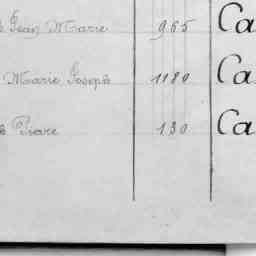 Jean Marie 965 Ca
Marie Joseph 1180 Ca
Pierre 130 Ca